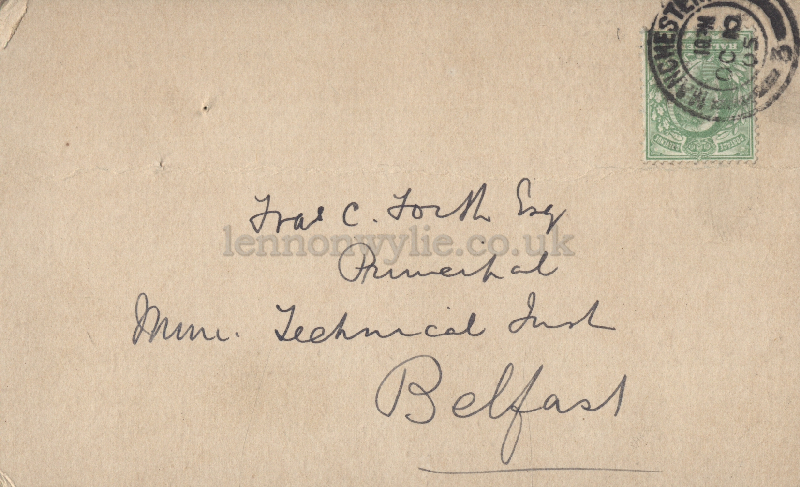 MANCHESTER
3
2
OC
05
Fras C. Forth Esq
lennonwylie.co.uk
Principal
Muni. Technical Inst
Belfast